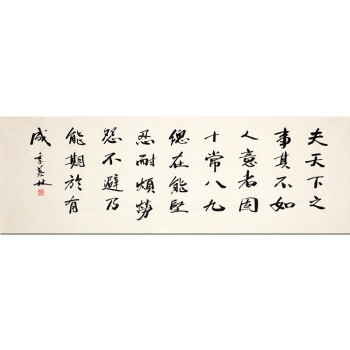 夫天下之
事其不如
人意者固
十常八九
總在能堅
忍耐煩勞
怨不避乃
能期於有
成 季羨林